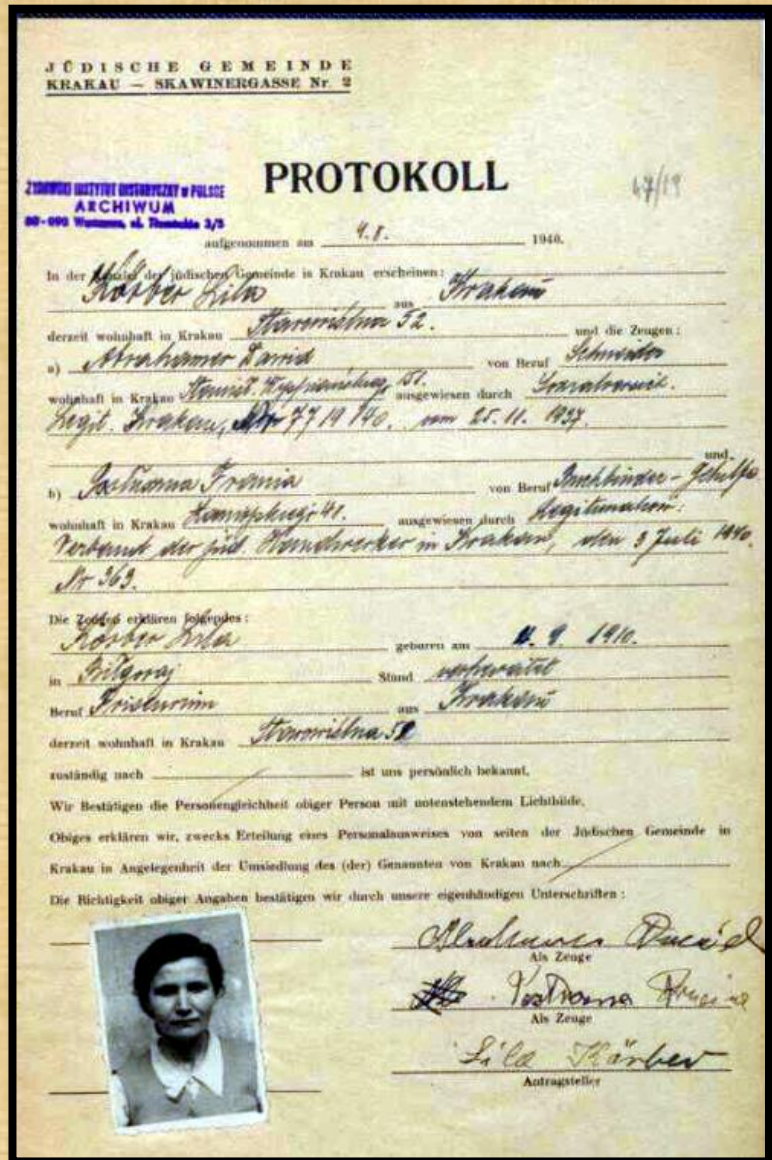 JÜDISCHE GEMEINDE
KRAKAU — SKAWINERGASSE Nr. 2
PROTOKOLL
47/19
ŻYDOWSKI INSTYTUT HISTORYCZNY w POLSCE
ARCHIWUM
00-090 Warszawa, al. Tłomackie 3/5
aufgenommen am 4.8. 1940.
In der Kanzlei der jüdischen Gemeinde in Krakau erscheinen:
Körber Lila aus Krakau
derzeit wohnhaft in Krakau Starowislna 52. und die Zeugen:
a) Abrahamer Dawid von Beruf Schneider
wohnhaft in Krakau 51. ausgewiesen durch
Legit. Krakau, Nr 77 19 140. vom 25.11. 1937.
und
b) Frania von Beruf Buchbinder-Gehilfe
wohnhaft in Krakau 41. ausgewiesen durch Legitimation:
Verband der jüd. Handwerker in Krakau, den 3 Juli 1940.
Nr 363.
Die Zeugen erklären folgendes:
Körber Lila geboren am 4. 9. 1910.
in Bilgoraj Stand verheiratet
Beruf Friseurin aus Krakau
derzeit wohnhaft in Krakau Starowislna 52
zuständig nach ist uns persönlich bekannt,
Wir Bestätigen die Personengleichheit obiger Person mit untenstehendem Lichtbilde,
Obiges erklären wir, zwecks Erteilung eines Personalausweises von seiten der Jüdischen Gemeinde in
Krakau in Angelegenheit der Umsiedlung des (der) Genannten von Krakau nach
Die Richtigkeit obiger Angaben bestätigen wir durch unsere eigenhändigen Unterschriften:
Abrahamer Dawid
Als Zeuge
Als Zeuge
Lila Körber
Antragsteller